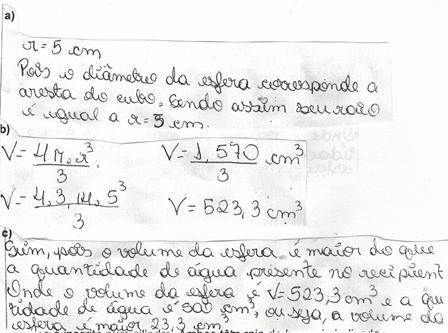 a)
r = 5 cm
Pois o diâmetro da esfera corresponde a
aresta do cubo. Sendo assim seu raio
é igual a r = 5 cm.
b)
V = 4π.r³/3 V = 1,570/3 cm³
V = 4.3,14.5³/3 V = 523,3 cm³
c)
Sim, pois o volume da esfera é maior do que
a quantidade de água presente no recipient
Onde o volume da esfera é V = 523,3 cm³ e a qu
tidade de água é 500 cm³, ou seja, o volume da
esfera é maior 23,3 cm